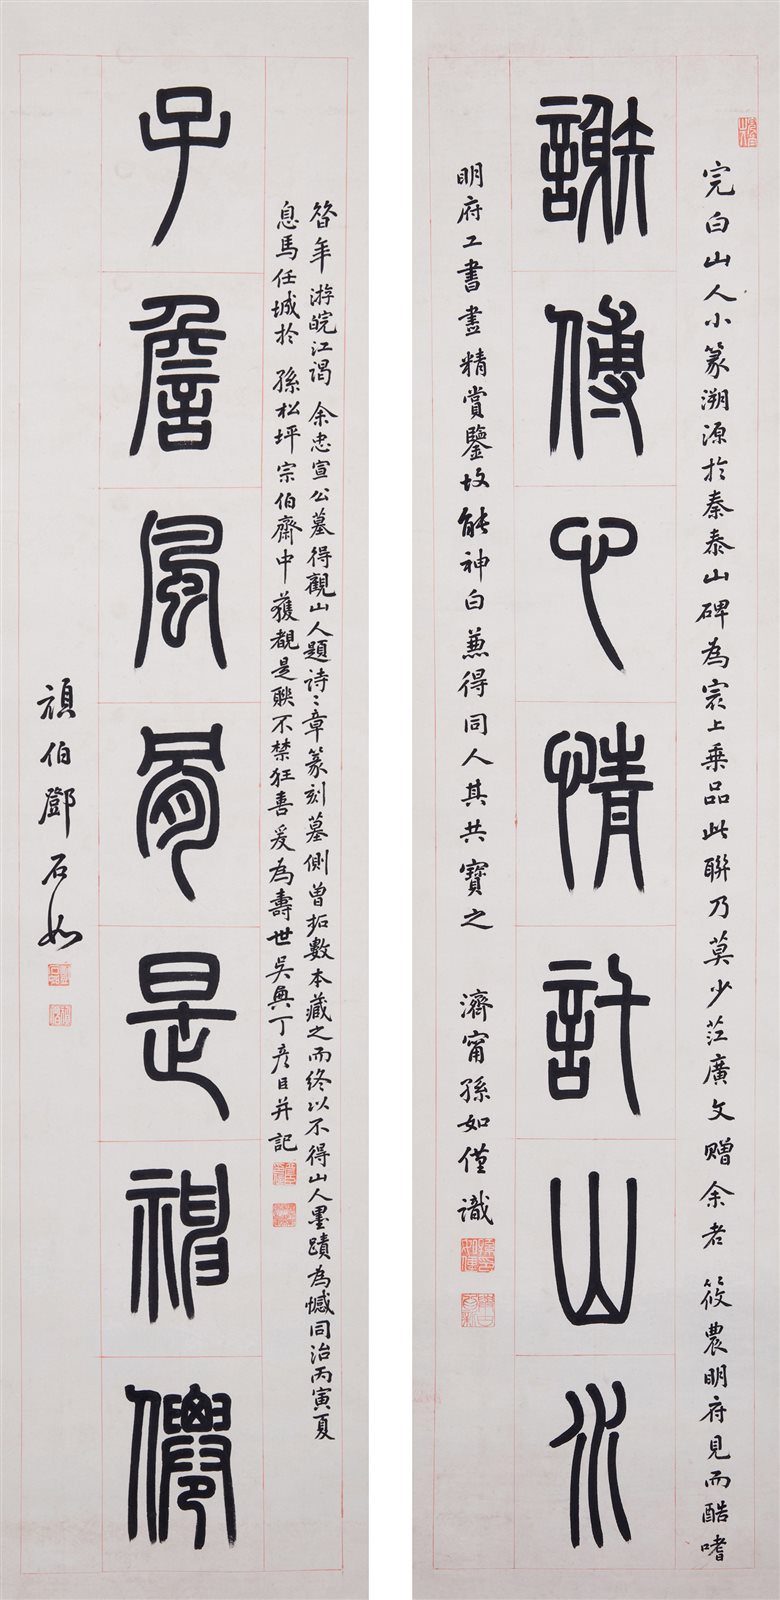 完白山人小篆溯源於秦泰山碑為㝡上乘品此聯乃莫少茳廣文贈余者 筱農明府見而酷嗜
謝傅心情託山水
明府工書畫精賞鑒故能神白兼得同人其共寶之 濟甯孫如僅識
昝年游皖江謁 余忠宣公墓得觀山人題詩〻章篆刻墓側曾拓數本藏之而終以不得山人墨蹟為憾同治丙寅夏
息馬任城於 孫松坪宗伯齋中獲覩是聯不禁狂喜爰為壽世吳興丁彥臣并記
子詹風骨是神僊
頑伯鄧石如